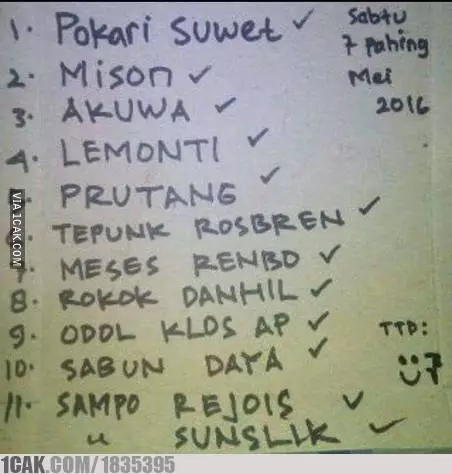 1. Pokari Suwet ✓
2. Mison ✓
3. AKUWA ✓
4. LEMONTI ✓
PRUTANG ✓
TEPUNK ROSBREN ✓
7. MESES RENBO ✓
8. ROKOK DANHIL ✓
9. ODOL KLOS AP ✓
10. SABUN DAYA ✓
11. SAMPO REJOIS ✓
" SUNSLIK ✓
Sabtu
7 pahing
Mei
2016
TTD:
VIA 1CAK.COM
1CAK.COM/1835395